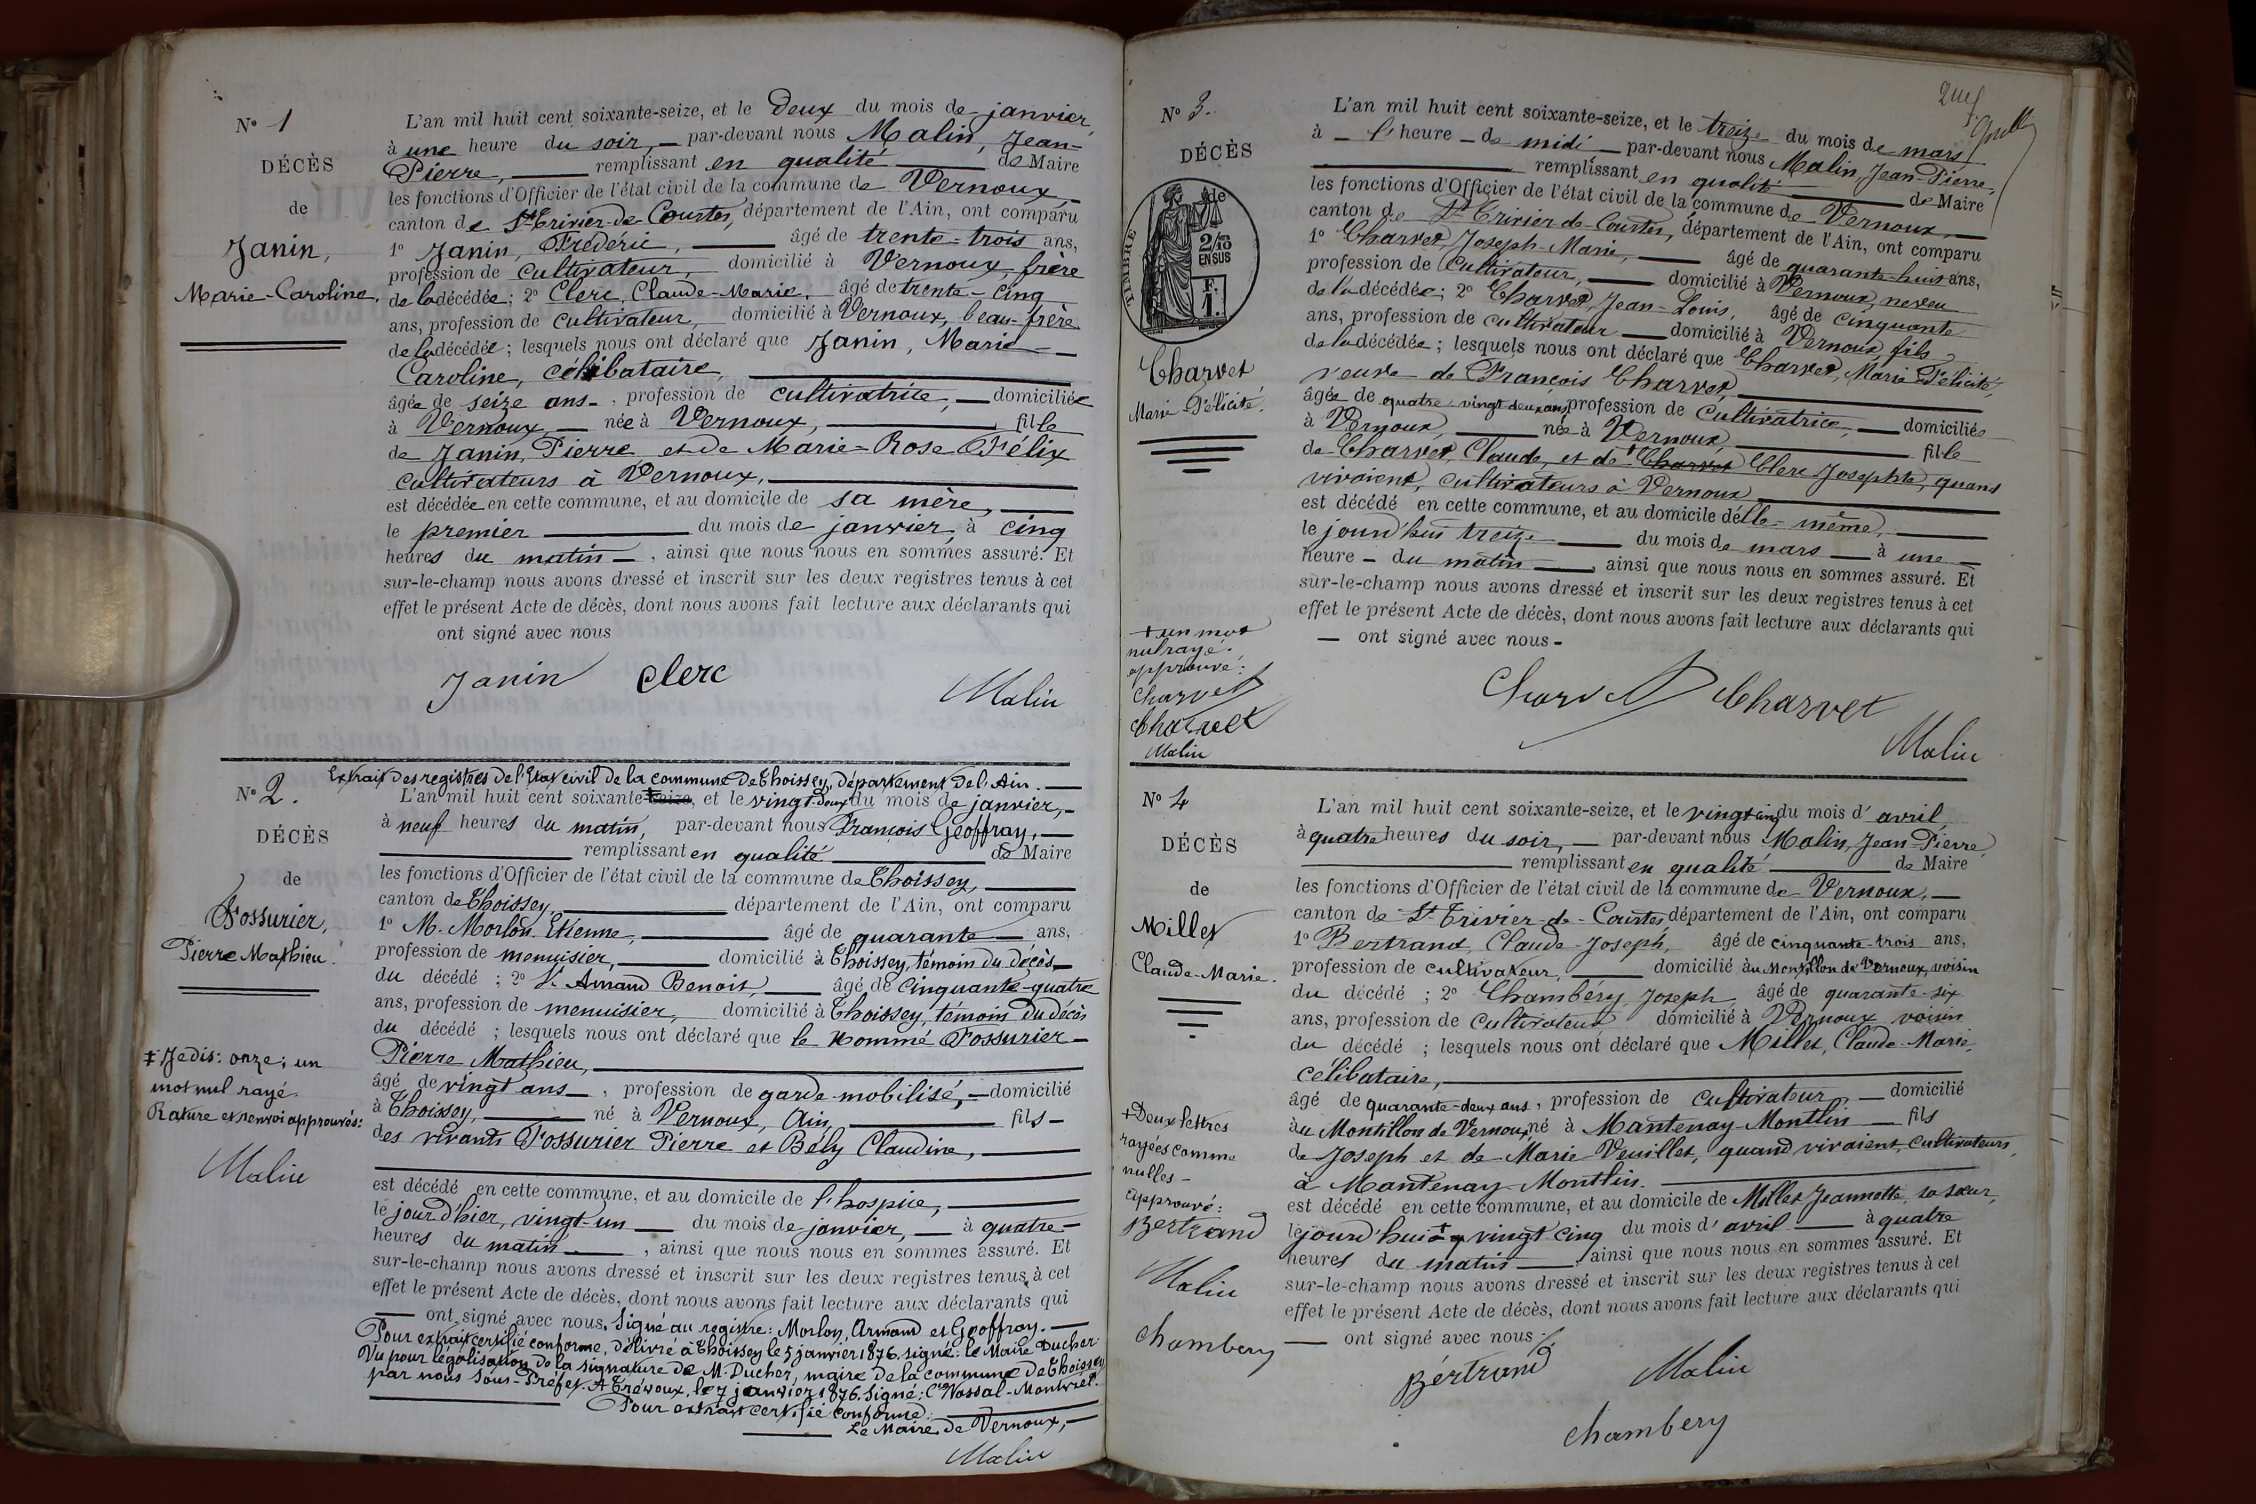 N° 1
DÉCÈS
de
Janin,
Marie-Caroline.
L'an mil huit cent soixante-seize, et le Deux du mois de janvier,
à une heure du soir, par-devant nous Malin, Jean-
Pierre, remplissant en qualité de Maire
les fonctions d'Officier de l'état civil de la commune de Vernoux
canton de St Trivier-de-Courtes, département de l'Ain, ont comparu
1° Janin, Fréderic, âgé de trente-trois ans,
profession de cultivateur, domicilié à Vernoux, frère
de la décédée; 2° Clerc, Claude-Marie, âgé de trente-cinq
ans, profession de cultivateur, domicilié à Vernoux, beau-frère
de la décédée; lesquels nous ont déclaré que Janin, Marie
Caroline, célibataire,
âgée de seize ans, profession de cultivatrice, domiciliée
à Vernoux, née à Vernoux, fille
de Janin, Pierre et de Marie-Rose Félix
cultivateurs à Vernoux,
est décédée en cette commune, et au domicile de sa mère,
le premier du mois de janvier, à cinq
heures du matin, ainsi que nous nous en sommes assuré. Et
sur-le-champ nous avons dressé et inscrit sur les deux registres tenus à cet
effet le présent Acte de décès, dont nous avons fait lecture aux déclarants qui
ont signé avec nous
Janin Clerc
Malin
Extrait des registres de l'Etat civil de la commune de Thoissey, département de l'Ain.
N° 2.
DÉCÈS
de
Fossurier,
Pierre Mathieu.
‡ Je dis: onze; un
mot nul rayé.
Rature et renvoi approuvés:
Malin
L'an mil huit cent soixante-‡seize, et le vingt-deux du mois de janvier,
à neuf heures du matin, par-devant nous François Geoffray,
remplissant en qualité de Maire
les fonctions d'Officier de l'état civil de la commune de Thoissey,
canton de Thoissey, département de l'Ain, ont comparu
1° M. Morlon Etienne, âgé de quarante ans,
profession de menuisier, domicilié à Thoissey, témoin du décès
du décédé; 2° Sr Armand Benoit, âgé de cinquante-quatre
ans, profession de menuisier, domicilié à Thoissey, témoin du décès
du décédé; lesquels nous ont déclaré que le nommé Fossurier
Pierre Mathieu,
âgé de vingt ans, profession de garde-mobilisé, domicilié
à Thoissey, né à Vernoux, Ain, fils
des vivants Fossurier Pierre et Bély Claudine,
est décédé en cette commune, et au domicile de l'hospice,
le jour d'hier, vingt-un du mois de janvier, à quatre
heures du matin, ainsi que nous nous en sommes assuré. Et
sur-le-champ nous avons dressé et inscrit sur les deux registres tenus à cet
effet le présent Acte de décès, dont nous avons fait lecture aux déclarants qui
ont signé avec nous. Signé au registre: Morlon, Armand et Geoffray.
Pour extrait certifié conforme, délivré à Thoissey le 5 janvier 1876. signé: le Maire Ducher.
Vu pour légalisation de la signature de M. Ducher, maire de la commune de Thoissey
par nous Sous-Préfet. A Trévoux, le 7 janvier 1876. Signé:
Pour extrait certifié conforme:
Le Maire de Vernoux,
Malin
N° 3.
DÉCÈS
de
TIMBRE
2/10
EN SUS
F.
1.
Charvet
Marie Félicité.
+ un mot
nul rayé.
approuvé:
Charvet
Charvet
Malin
L'an mil huit cent soixante-seize, et le treize du mois de mars
à l'heure de midi par-devant nous Malin, Jean-Pierre,
remplissant en qualité de Maire
les fonctions d'Officier de l'état civil de la commune de Vernoux,
canton de St Trivier-de-Courtes, département de l'Ain, ont comparu
1° Charvet, Joseph-Marie, âgé de quarante-huit ans,
profession de cultivateur, domicilié à Vernoux, neveu
de la décédée; 2° Charvet, Jean-Louis, âgé de cinquante
ans, profession de cultivateur domicilié à Vernoux, fils
de la décédée; lesquels nous ont déclaré que Charvet, Marie Félicité,
veuve de François Charvet,
âgée de quatre-vingt-deux ans, profession de cultivatrice, domiciliée
à Vernoux née à Vernoux fille
de Charvet, Claude, et de + Charvet Clerc Josephte, quand
vivaient, cultivateurs à Vernoux
est décédé en cette commune, et au domicile d'elle-même,
le jourd'hui treize du mois de mars à une
heure du matin, ainsi que nous nous en sommes assuré. Et
sur-le-champ nous avons dressé et inscrit sur les deux registres tenus à cet
effet le présent Acte de décès, dont nous avons fait lecture aux déclarants qui
ont signé avec nous
Charvet Charvet
Malin
N° 4
DÉCÈS
de
Millet
Claude-Marie.
+ Deux lettres
rayées comme
nulles
approuvé:
Bertrand
Malin
Chambery
L'an mil huit cent soixante-seize, et le vingt-cinq du mois d'avril
à quatre heures du soir, par-devant nous Malin, Jean-Pierre
remplissant en qualité de Maire
les fonctions d'Officier de l'état civil de la commune de Vernoux,
canton de St Trivier-de-Courtes, département de l'Ain, ont comparu
1° Bertrand, Claude-Joseph, âgé de cinquante-trois ans,
profession de cultivateur, domicilié au Montillon de Vernoux, voisin
du décédé; 2° Chambéry, Joseph, âgé de quarante-six
ans, profession de cultivateur domicilié à Vernoux voisin
du décédé; lesquels nous ont déclaré que Millet, Claude-Marie,
célibataire,
âgé de quarante-deux ans, profession de cultivateur, domicilié
au Montillon de Vernoux, né à Mantenay-Montlin fils
de Joseph et de Marie Veuillet, quand vivaient, cultivateurs,
à Mantenay-Montlin.
est décédé en cette commune, et au domicile de Millet Jeannette, sa sœur,
le jourd'hui + vingt-cinq du mois d'avril à quatre
heures du matin, ainsi que nous nous en sommes assuré. Et
sur-le-champ nous avons dressé et inscrit sur les deux registres tenus à cet
effet le présent Acte de décès, dont nous avons fait lecture aux déclarants qui
ont signé avec nous.
Bertrand Malin
Chambery